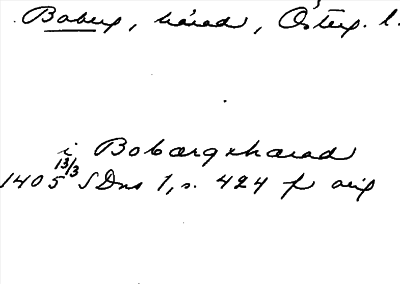 Boberg, härad, Österg. l.
i Bobærgxhærad
1405 13/3 SDns 1, s. 424 fr orig